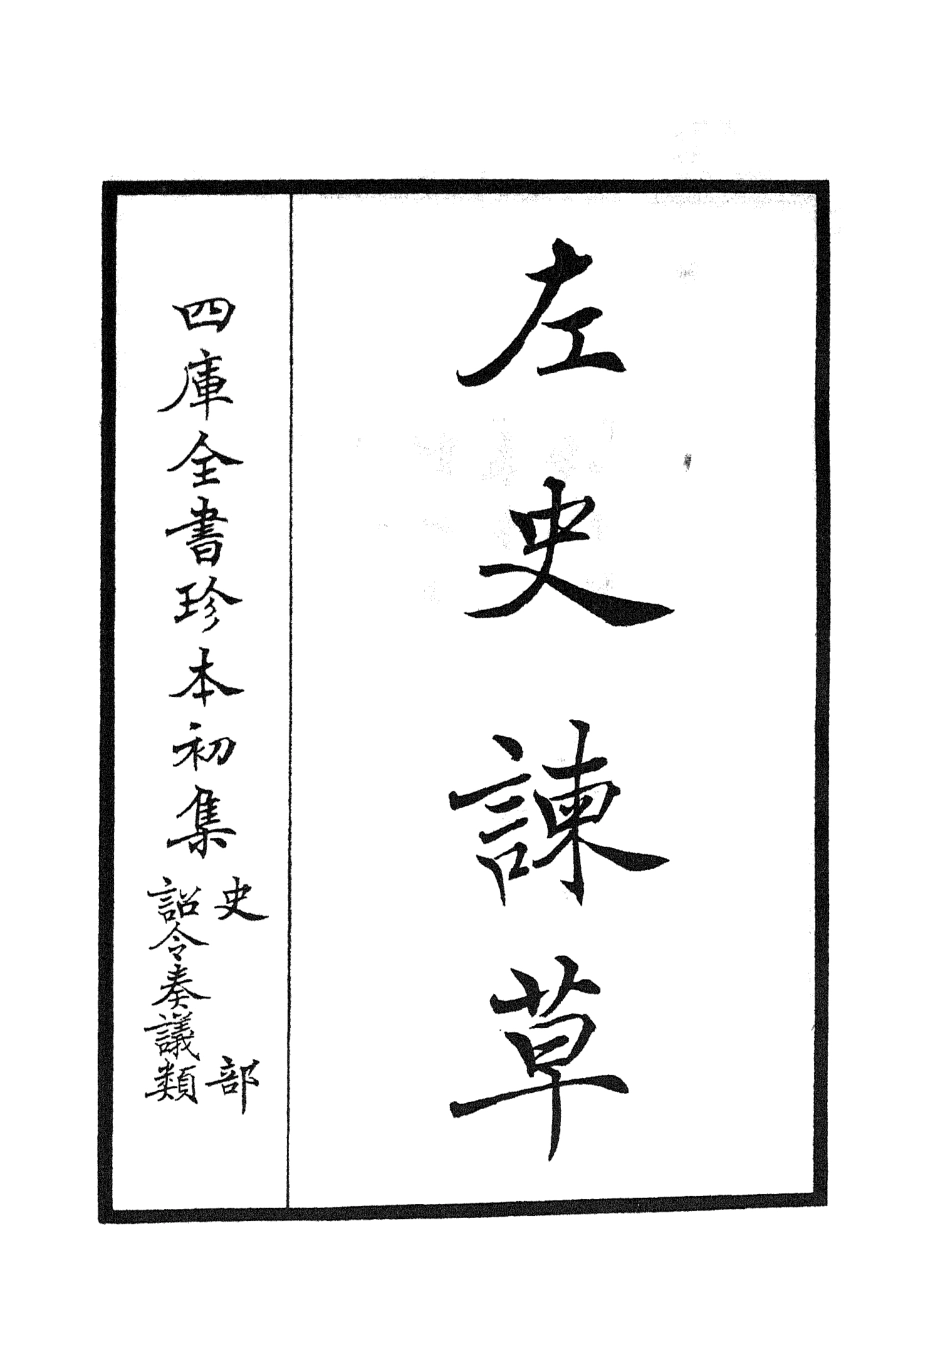 左史諫草
四庫全書珍本初集
史部
詔令奏議類